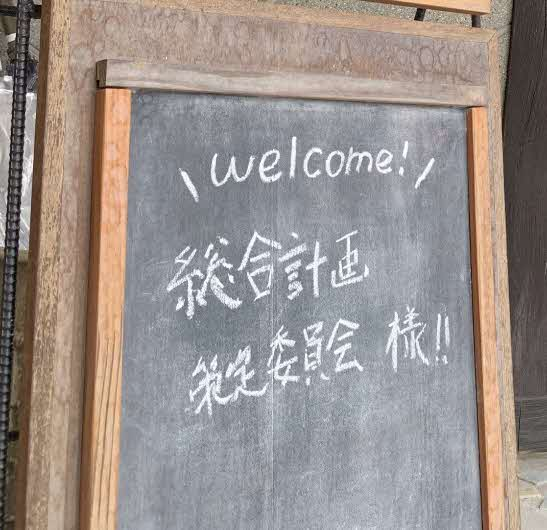 \ welcome! /
総合計画
策定委員会 様!!